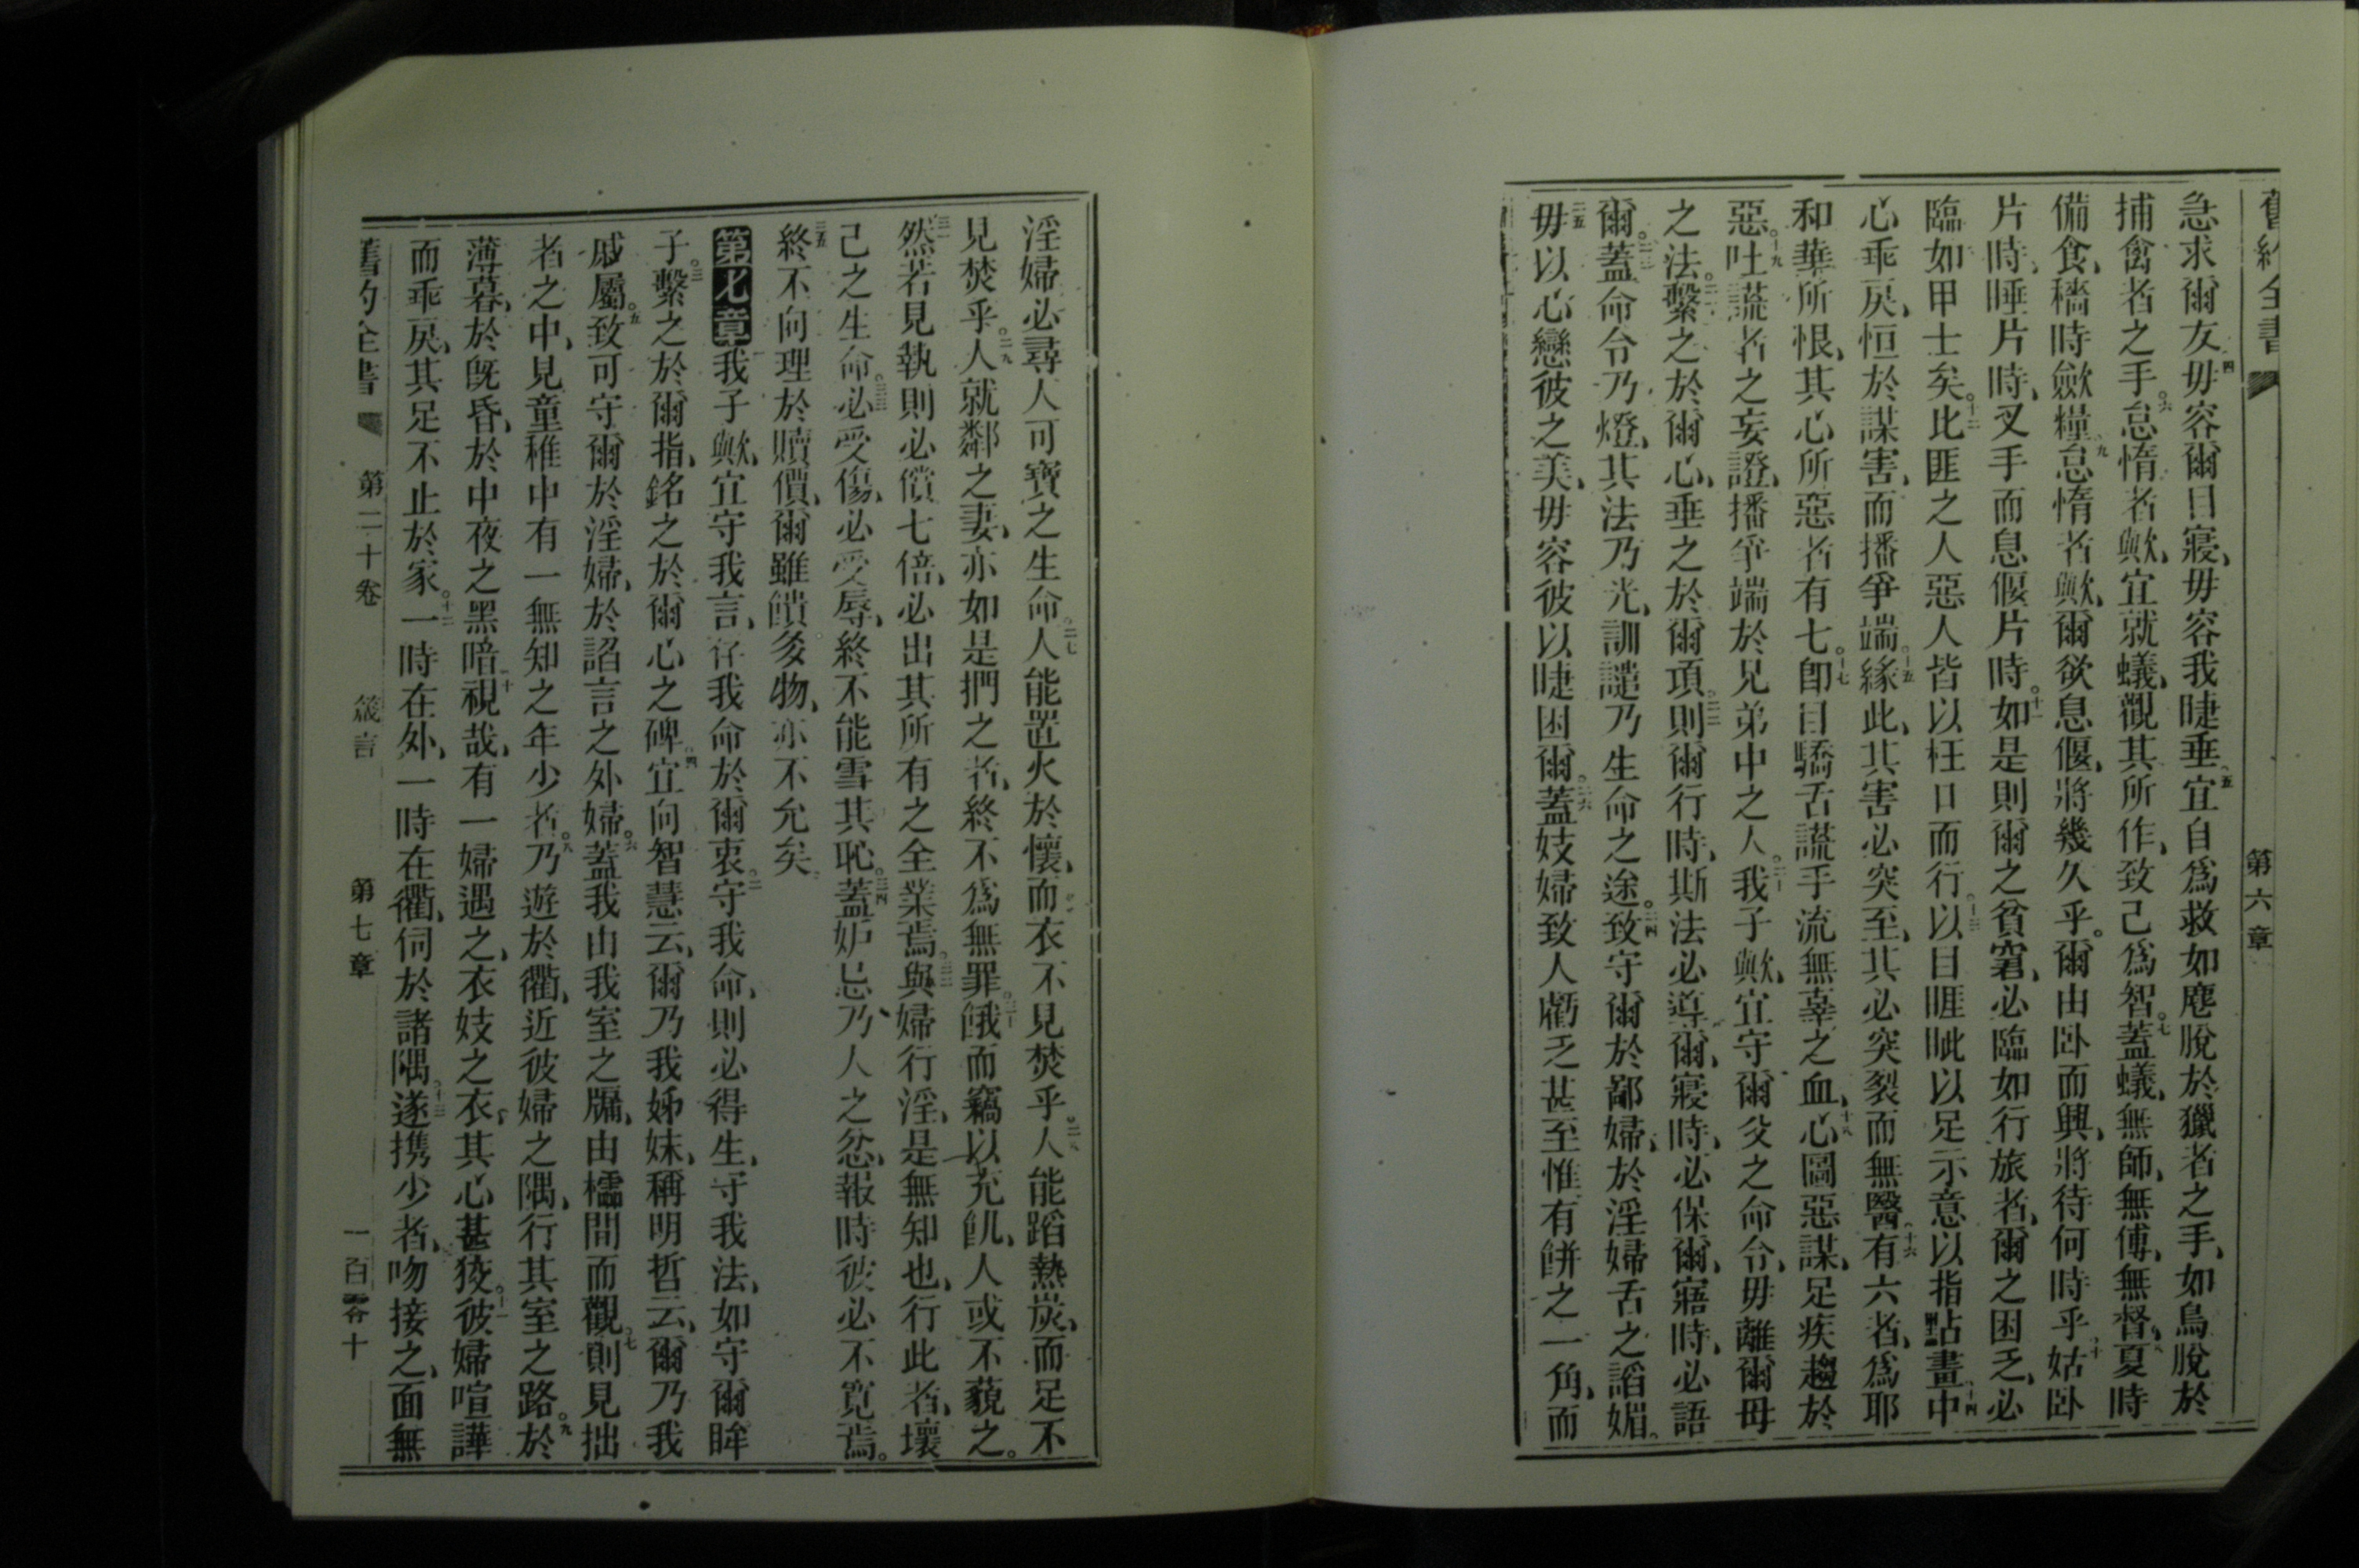 舊約全書 第六章
急求爾友四毋容爾目寢、毋容我睫垂五宜自爲救如麀脫於獵者之手、如鳥脫於
捕禽者之手。六怠惰者歟、宜就蟻、觀其所作、致己爲智。七蓋蟻、無師、無傅、無督、八夏時
備食、穡時歛糧。九怠惰者歟、爾欲息偃、將幾久乎。爾由卧而興、將待何時乎十姑卧
片時、睡片時、叉手而息偃片時。十一如是則爾之貧窘、必臨如行旅者、爾之困乏、必
臨如甲士矣。十二此匪之人惡人皆以枉口而行。十三以目睚眦以足示意以指點畫十四中
心乖戾、恒於謀害、而播爭端。十五緣此、其害必突至、其必突裂而無醫十六有六者、爲耶
和華所恨、其心所惡者有七。十七卽目驕舌謊手流無辜之血、十八心圖惡謀、足疾趨於
惡。十九吐謊者之妄證、播爭端於兄弟中之人。二十我子歟、宜守爾父之命令、毋離爾母
之法。二一繫之於爾心、垂之於爾項。二二則爾行時、斯法必導爾、寢時、必保爾、寤時、必語
爾。二三蓋命令乃燈、其法乃光、訓譴乃生命之途。二四致守爾於鄙婦、於淫婦舌之謟媚。
二五毋以心戀彼之美、毋容彼以睫困爾。二六蓋妓婦致人虧乏甚至惟有餅之一角、而
淫婦必尋人可寶之生命。二七人能置火於懷、而衣不見焚乎。二八人能蹈熱炭、而足不
見焚乎。二九人就鄰之妻、亦如是捫之者、終不爲無罪。三十餓而竊以充飢、人或不藐之。
三一然若見執則必償七倍、必出其所有之全業焉。三二與婦行淫、是無知也、行此者、壞
己之生命。三三必受傷、必受辱、終不能雪其恥。三四蓋妒忌乃人之忿、報時彼必不寬焉。
三五終不向理於贖價、爾雖饋多物、亦不允矣
第七章一我子歟、宜守我言、存我命於爾衷。二守我命、則必得生、守我法、如守爾眸
子。三繫之於爾指、銘之於爾心之碑。四宜向智慧云、爾乃我姊妹、稱明哲云、爾乃我
戚屬。五致可守爾於淫婦、於謟言之外婦。六蓋我由我室之牖、由櫺間而觀。七則見拙
者之中、見童稚中有一無知之年少者。八乃遊於衢、近彼婦之隅、行其室之路。九於
薄暮、於旣昏、於中夜之黑暗十視哉、有一婦遇之、衣妓之衣、其心甚狡。十一彼婦喧譁
而乖戾、其足不止於家。十二一時在外、一時在衢、伺於諸隅。十三遂携少者、吻接之、面無
舊約全書 第二十卷 箴言 第七章 一百零十